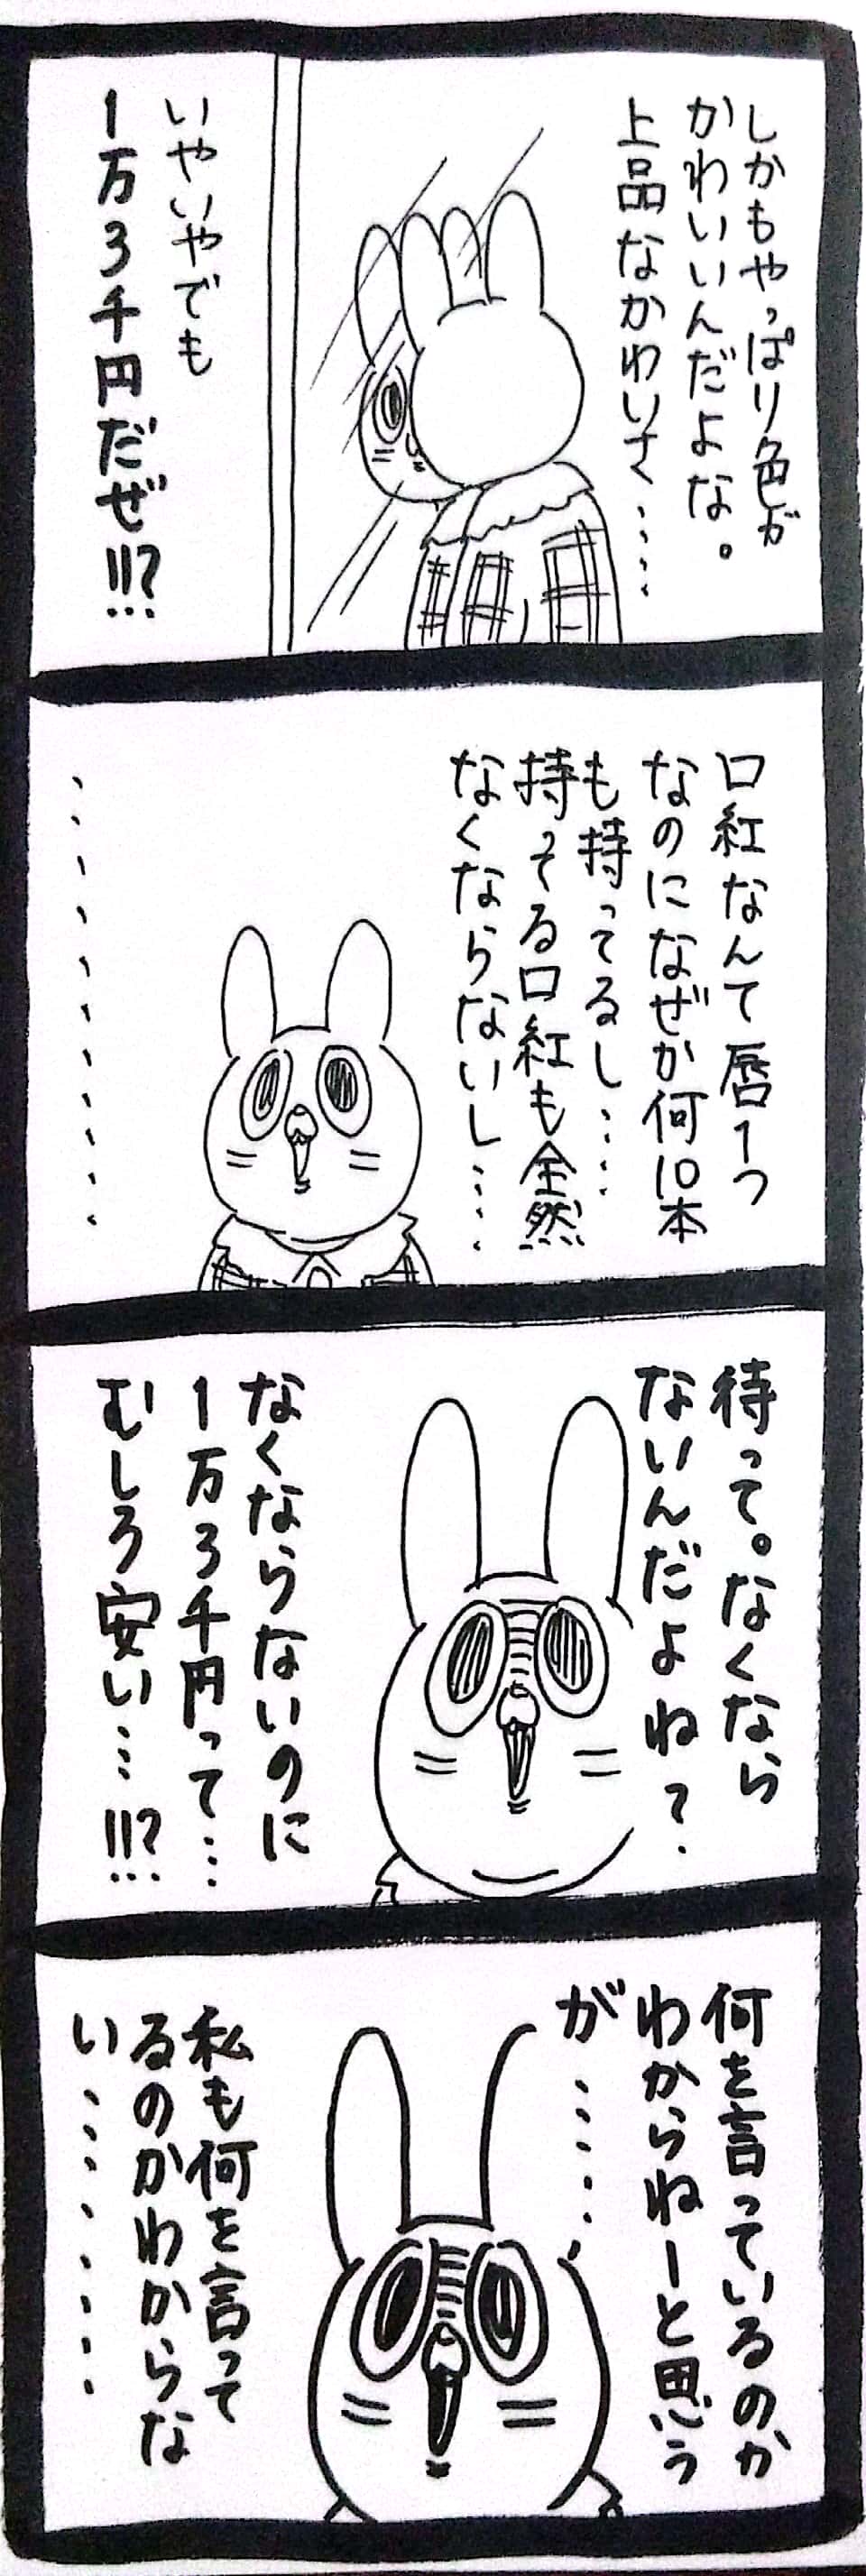 しかもやっぱり色が
かわいいんだよな。
上品なかわいさ‥‥
いやいやでも
1万3千円だぜ!!?
口紅なんて唇1つ
なのになぜか何10本
も持ってるし‥‥
持ってる口紅も全然
なくならないし‥‥
‥‥‥‥‥
待って。なくなら
ないんだよね?
なくならないのに
1万3千円って…
むしろ安い…!!?
何を言っているのか
わからねーと思う
が‥‥‥
私も何を言って
るのかわからな
い‥‥‥‥